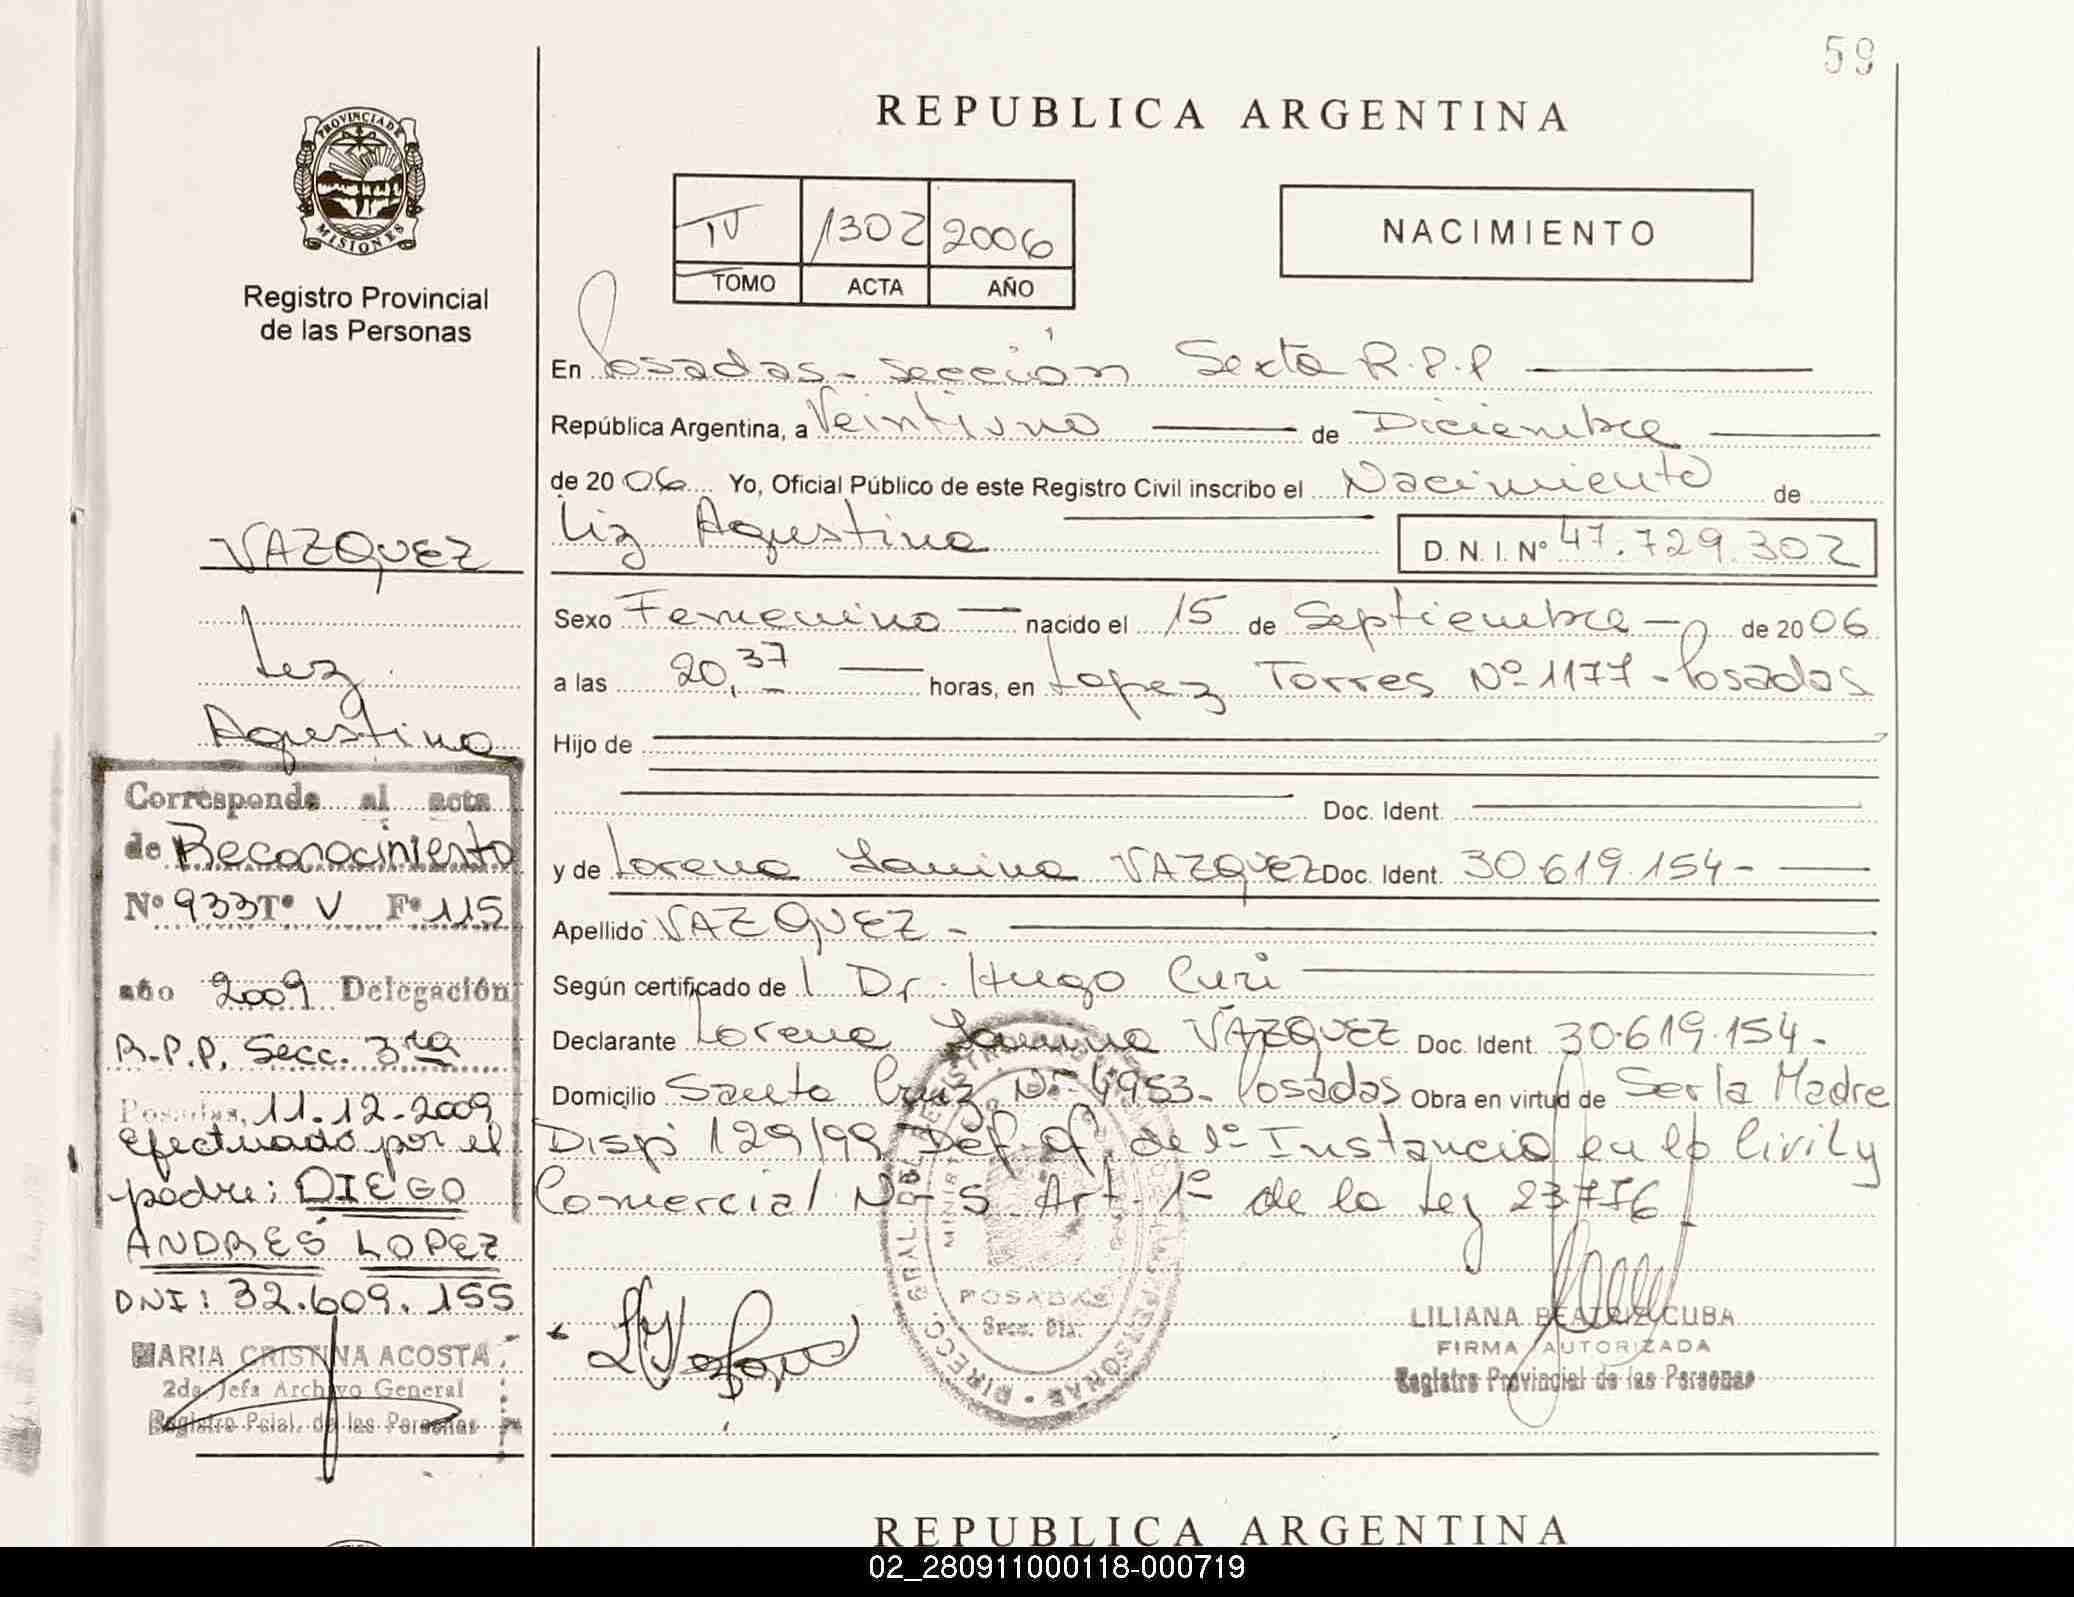 59
REPUBLICA ARGENTINA
PROVINCIA DE
MISIONES
Registro Provincial
de las Personas
IV 1302 2006
TOMO ACTA AÑO
NACIMIENTO
En Posadas - sección Sexta R.P.P
República Argentina, a Veintiuno de Diciembre
de 2006 Yo, Oficial Público de este Registro Civil inscribo el Nacimiento de
Liz Agustina D. N. I. Nº 47.729.302
Sexo Femenino nacido el 15 de Septiembre de 2006
a las 20,37 horas, en Lopez Torres Nº 1177 - Posadas
Hijo de
Doc. Ident.
y de Lorena Yanina VAZQUEZ Doc. Ident. 30.619.154 -
Apellido VAZQUEZ -
Según certificado de l Dr. Hugo Curi
Declarante Lorena Yanina VAZQUEZ Doc. Ident. 30.619.154 -
Domicilio Santa Cruz Nº 4953 - Posadas Obra en virtud de Ser la Madre
Disp 129/99 Def. Of. de 1º Instancia en lo Civil y
Comercial Nº 5 Art. 1º de la Ley 23.776
POSADAS
LILIANA BEATRIZ CUBA
FIRMA AUTORIZADA
Registro Provincial de las Personas
VAZQUEZ
Liz
Agustina
Corresponde al acta
de Reconocimiento
Nº 933 Tº V Fº 115
año 2009 Delegación
R.P.P. Secc. 3ra
Posadas, 11-12-2009
efectuado por el
padre: DIEGO
ANDRES LOPEZ
DNI: 32.609.155
MARIA CRISTINA ACOSTA
2da. Jefa Archivo General
Registro Pcial. de las Personas
REPUBLICA ARGENTINA
02_280911000118-000719